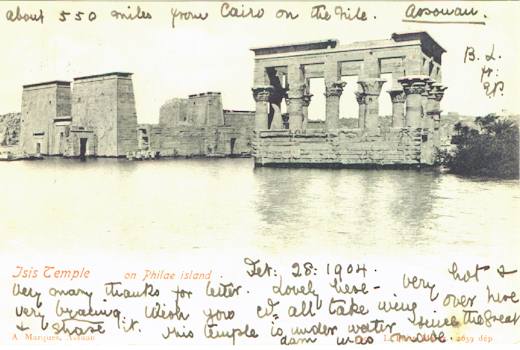 about 550 miles from Cairo on the Nile. Assouan.
B. L.
Isis Temple on Philae island. Feb: 28: 1904.
Very many thanks for letter. Lovely here - very hot &
very bracing. Wish you cd all take wing over here
& share it. This temple is under water since the Great
dam was made.
A. Marques, Assuan
2659 dép